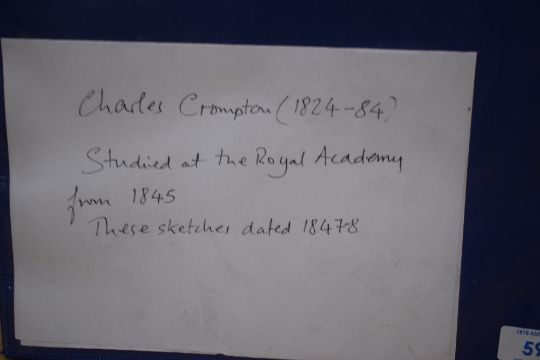 Charles Crompton (1824-84)
Studied at the Royal Academy
from 1845
These sketches dated 1847-8